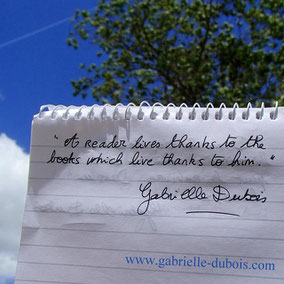 "A reader lives thanks to the
books which live thanks to him."
Gabrielle Dubois
www.gabrielle-dubois.com